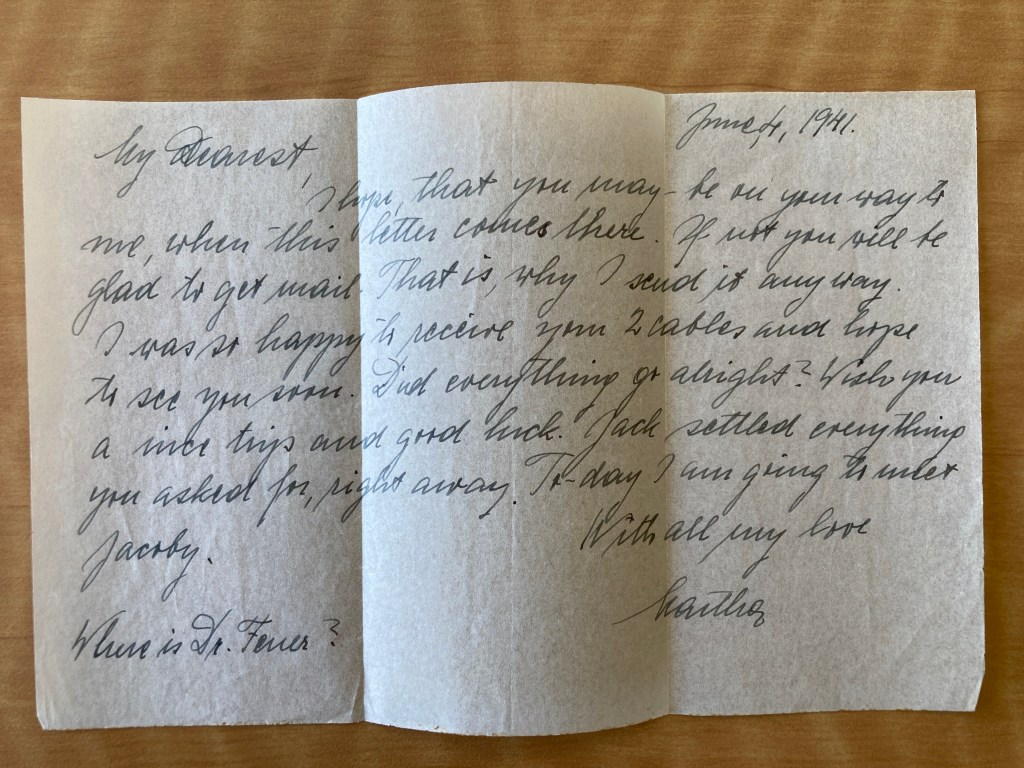 June, 4, 1941.
My Dearest,
I hope, that you may-be on your way to
me, when this letter comes there. If not you will be
glad to get mail. That is, why I send it anyway.
I was so happy to receive your 2 cables and hope
to see you soon. Did everything go alright? Wish you
a nice trip and good luck. Jack settled everything
you asked for, right away. To-day I am going to meet
Jacoby.
With all my love
Martha
Where is Dr. Feuer?